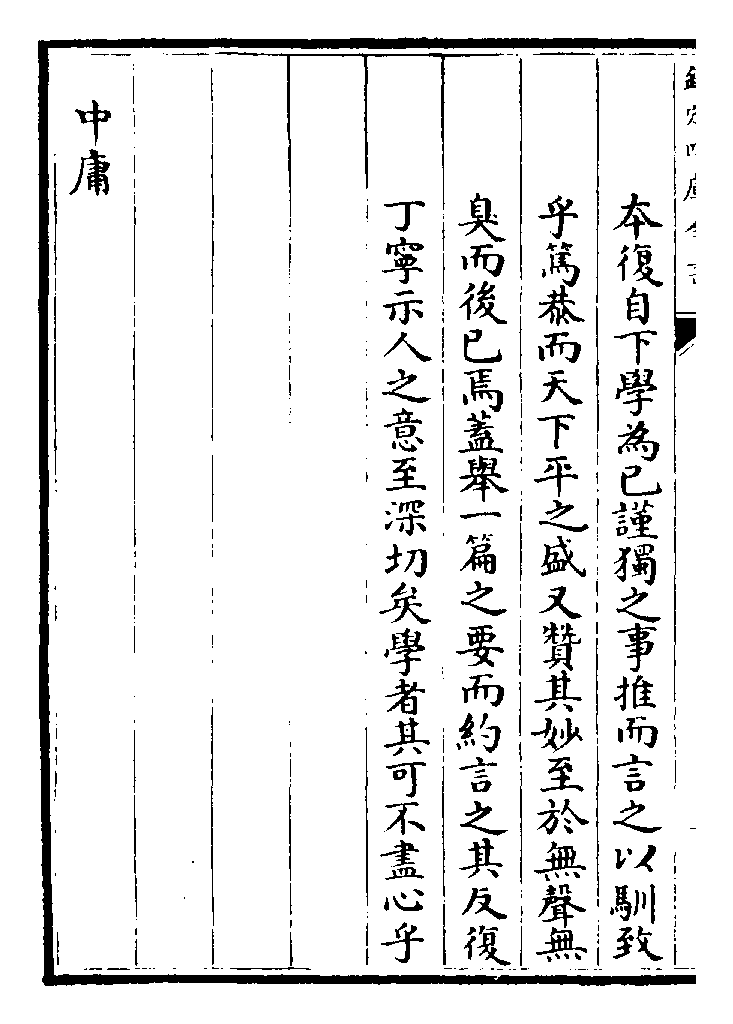 欽定四庫全書
本復自下學為已謹獨之事推而言之以馴致
乎篤恭而天下平之盛又贊其妙至於無聲無
臭而後已焉蓋舉一篇之要而約言之其反復
丁寧示人之意至深切矣學者其可不盡心乎
中庸